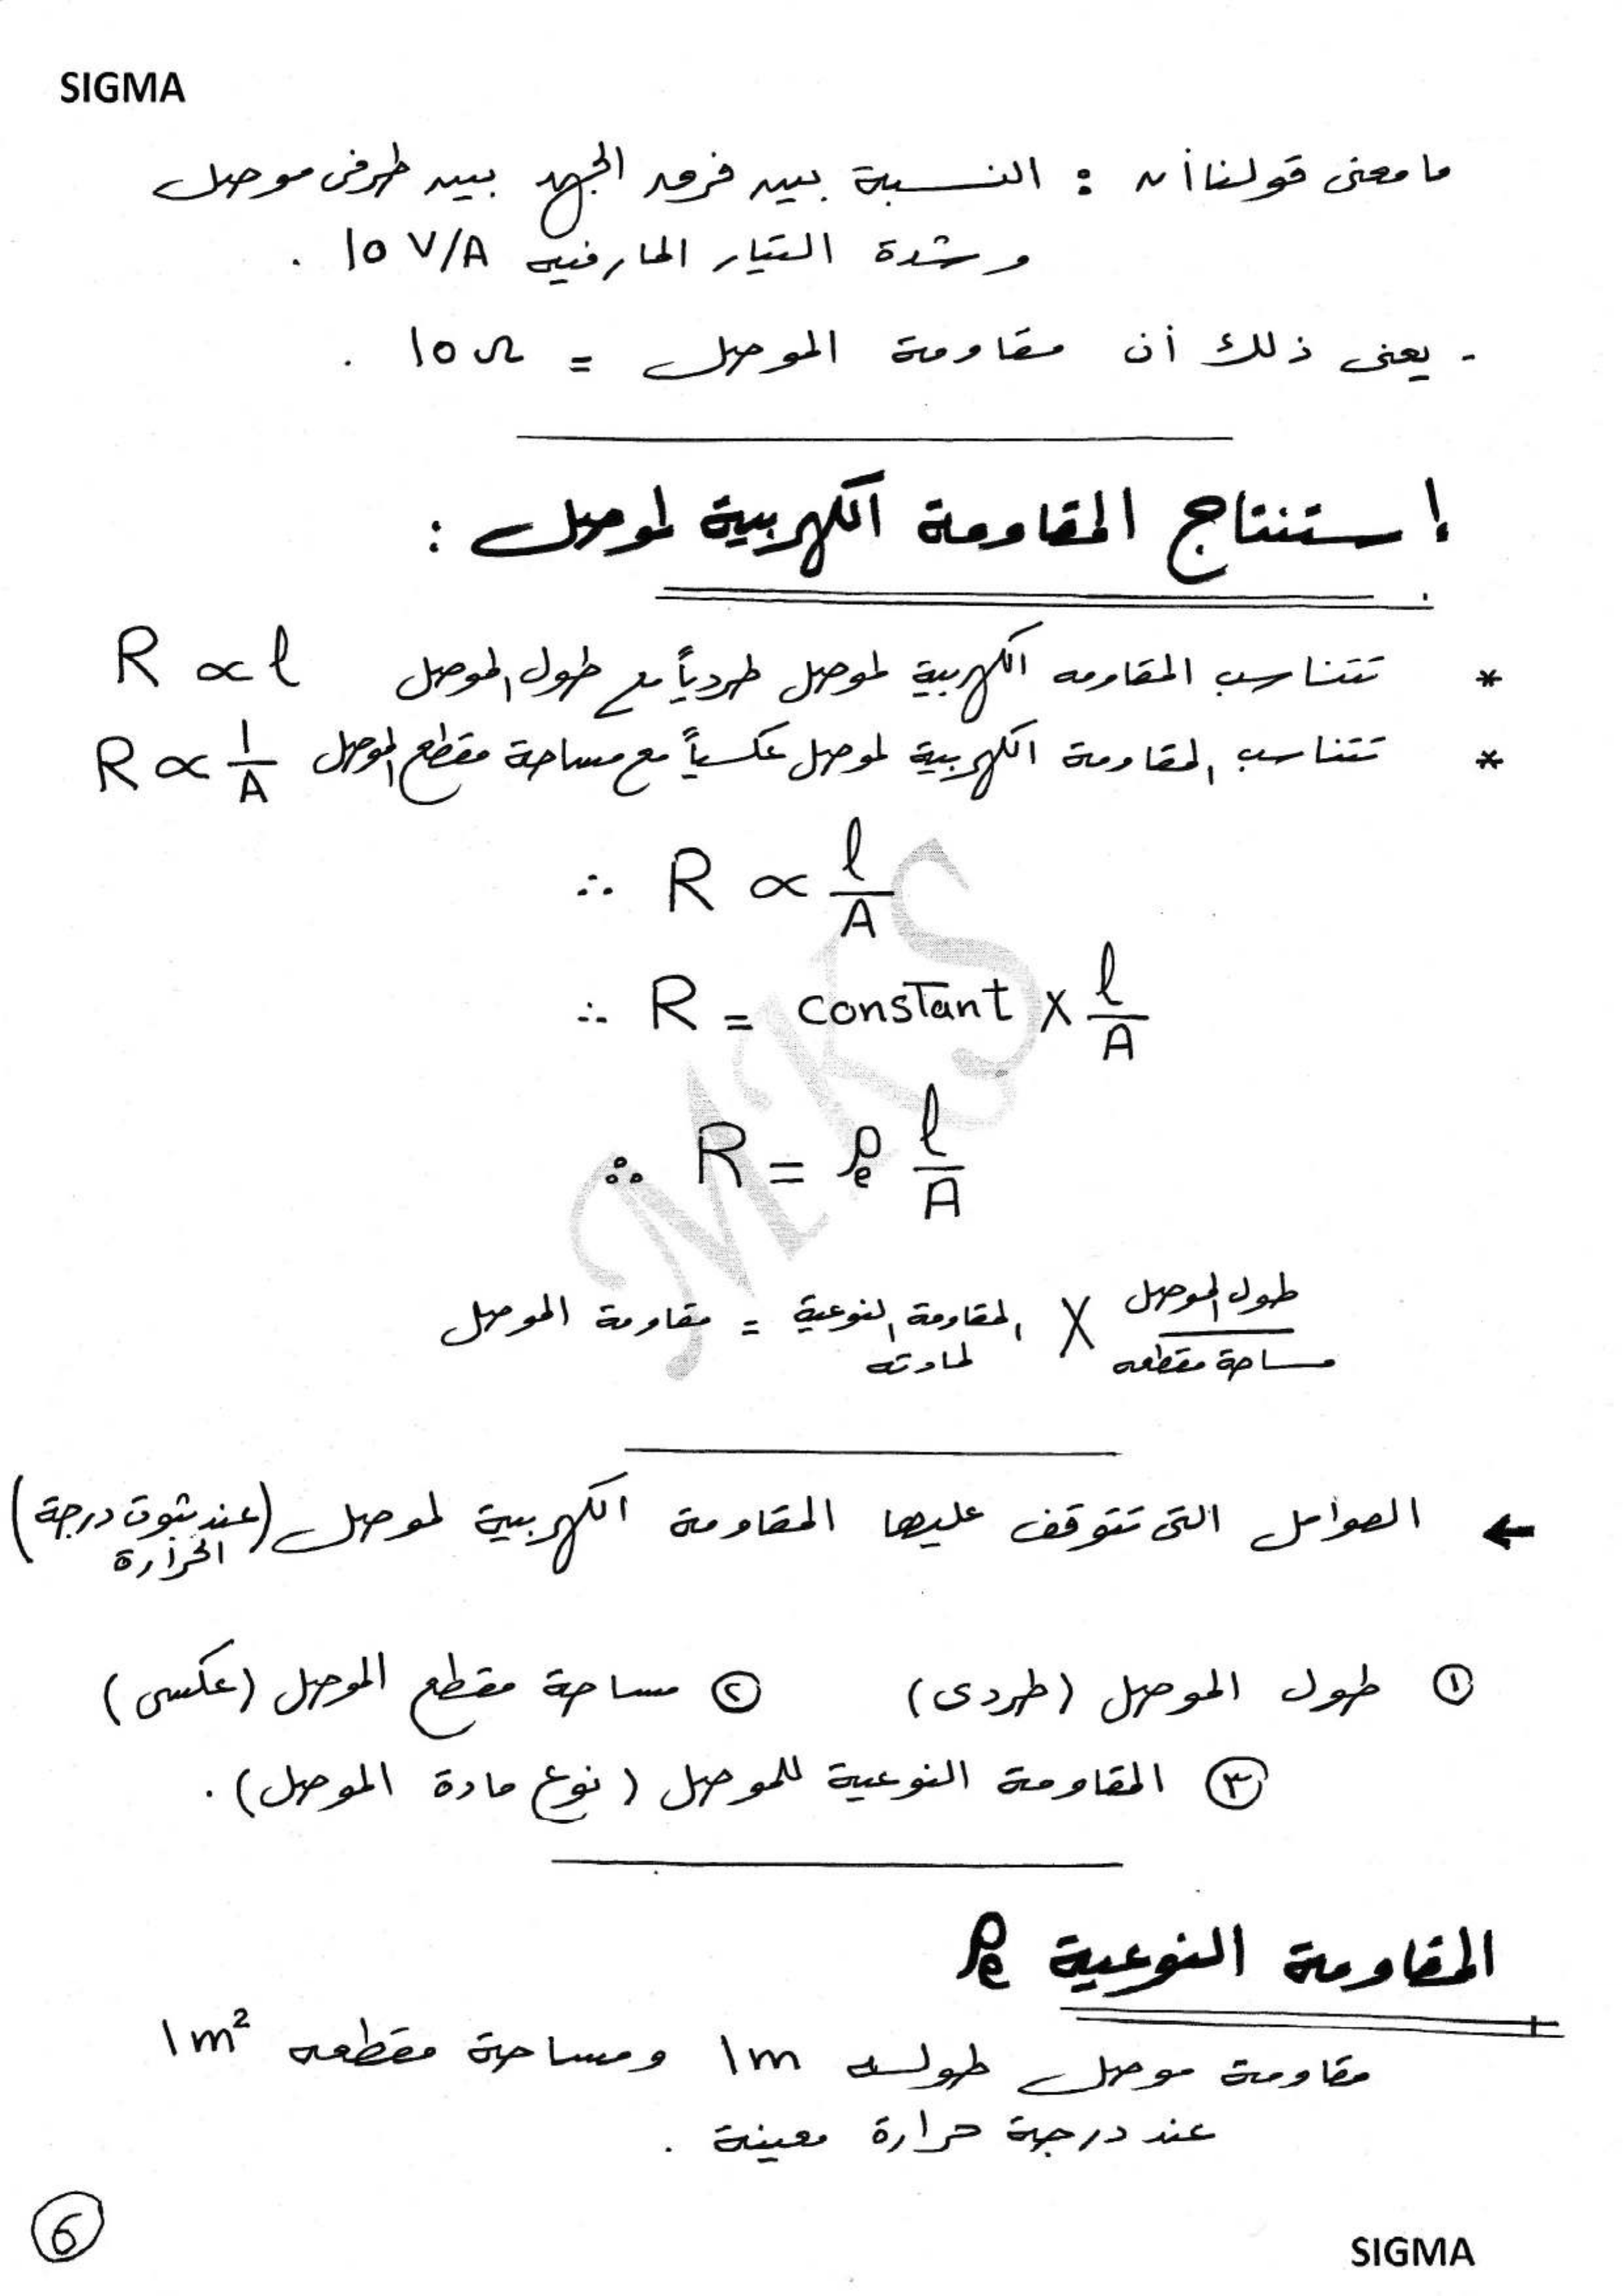 SIGMA
ما معنى قولنا أن : النسبة بين فرق الجهد بين طرفى موصل
وشدة التيار المار فيه 10 V/A .
- يعنى ذلك أن مقاومة الموصل = 10 Ω .
إستنتاج المقاومة الكهربية لموصل :
* تتناسب المقاومه الكهربية لموصل طردياً مع طول الموصل R ∝ l
* تتناسب المقاومة الكهربية لموصل عكسياً مع مساحة مقطع الموصل R ∝ 1/A
∴ R ∝ l/A
∴ R = constant × l/A
∴ R = ρe l/A
مقاومة الموصل = المقاومة النوعية لمادته × طول الموصل / مساحة مقطعه
MKS
← العوامل التى تتوقف عليها المقاومة الكهربية لموصل (عند ثبوت درجة الحرارة)
① طول الموصل (طردى) ② مساحة مقطع الموصل (عكسى)
③ المقاومة النوعية للموصل (نوع مادة الموصل) .
المقاومة النوعية ρe
مقاومة موصل طوله 1m ومساحة مقطعه 1m²
عند درجة حرارة معينة .
6
SIGMA